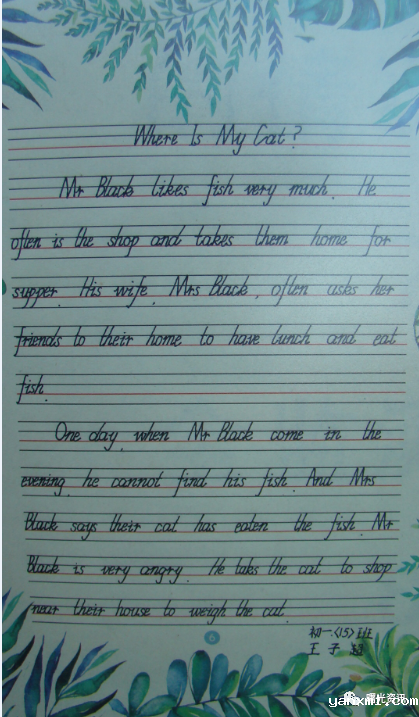 Where Is My Cat?
Mr Black likes fish very much. He
often is the shop and takes them home for
supper. His wife, Mrs Black, often asks her
friends to their home to have lunch and eat
fish.
One day, when Mr Black come in the
evening, he cannot find his fish. And Mrs
Black says their cat has eaten the fish. Mr
Black is very angry. He taks the cat to shop
near their house to weigh the cat.
6
初一〈15〉班
王子
曙光资讯
yanxmi.com